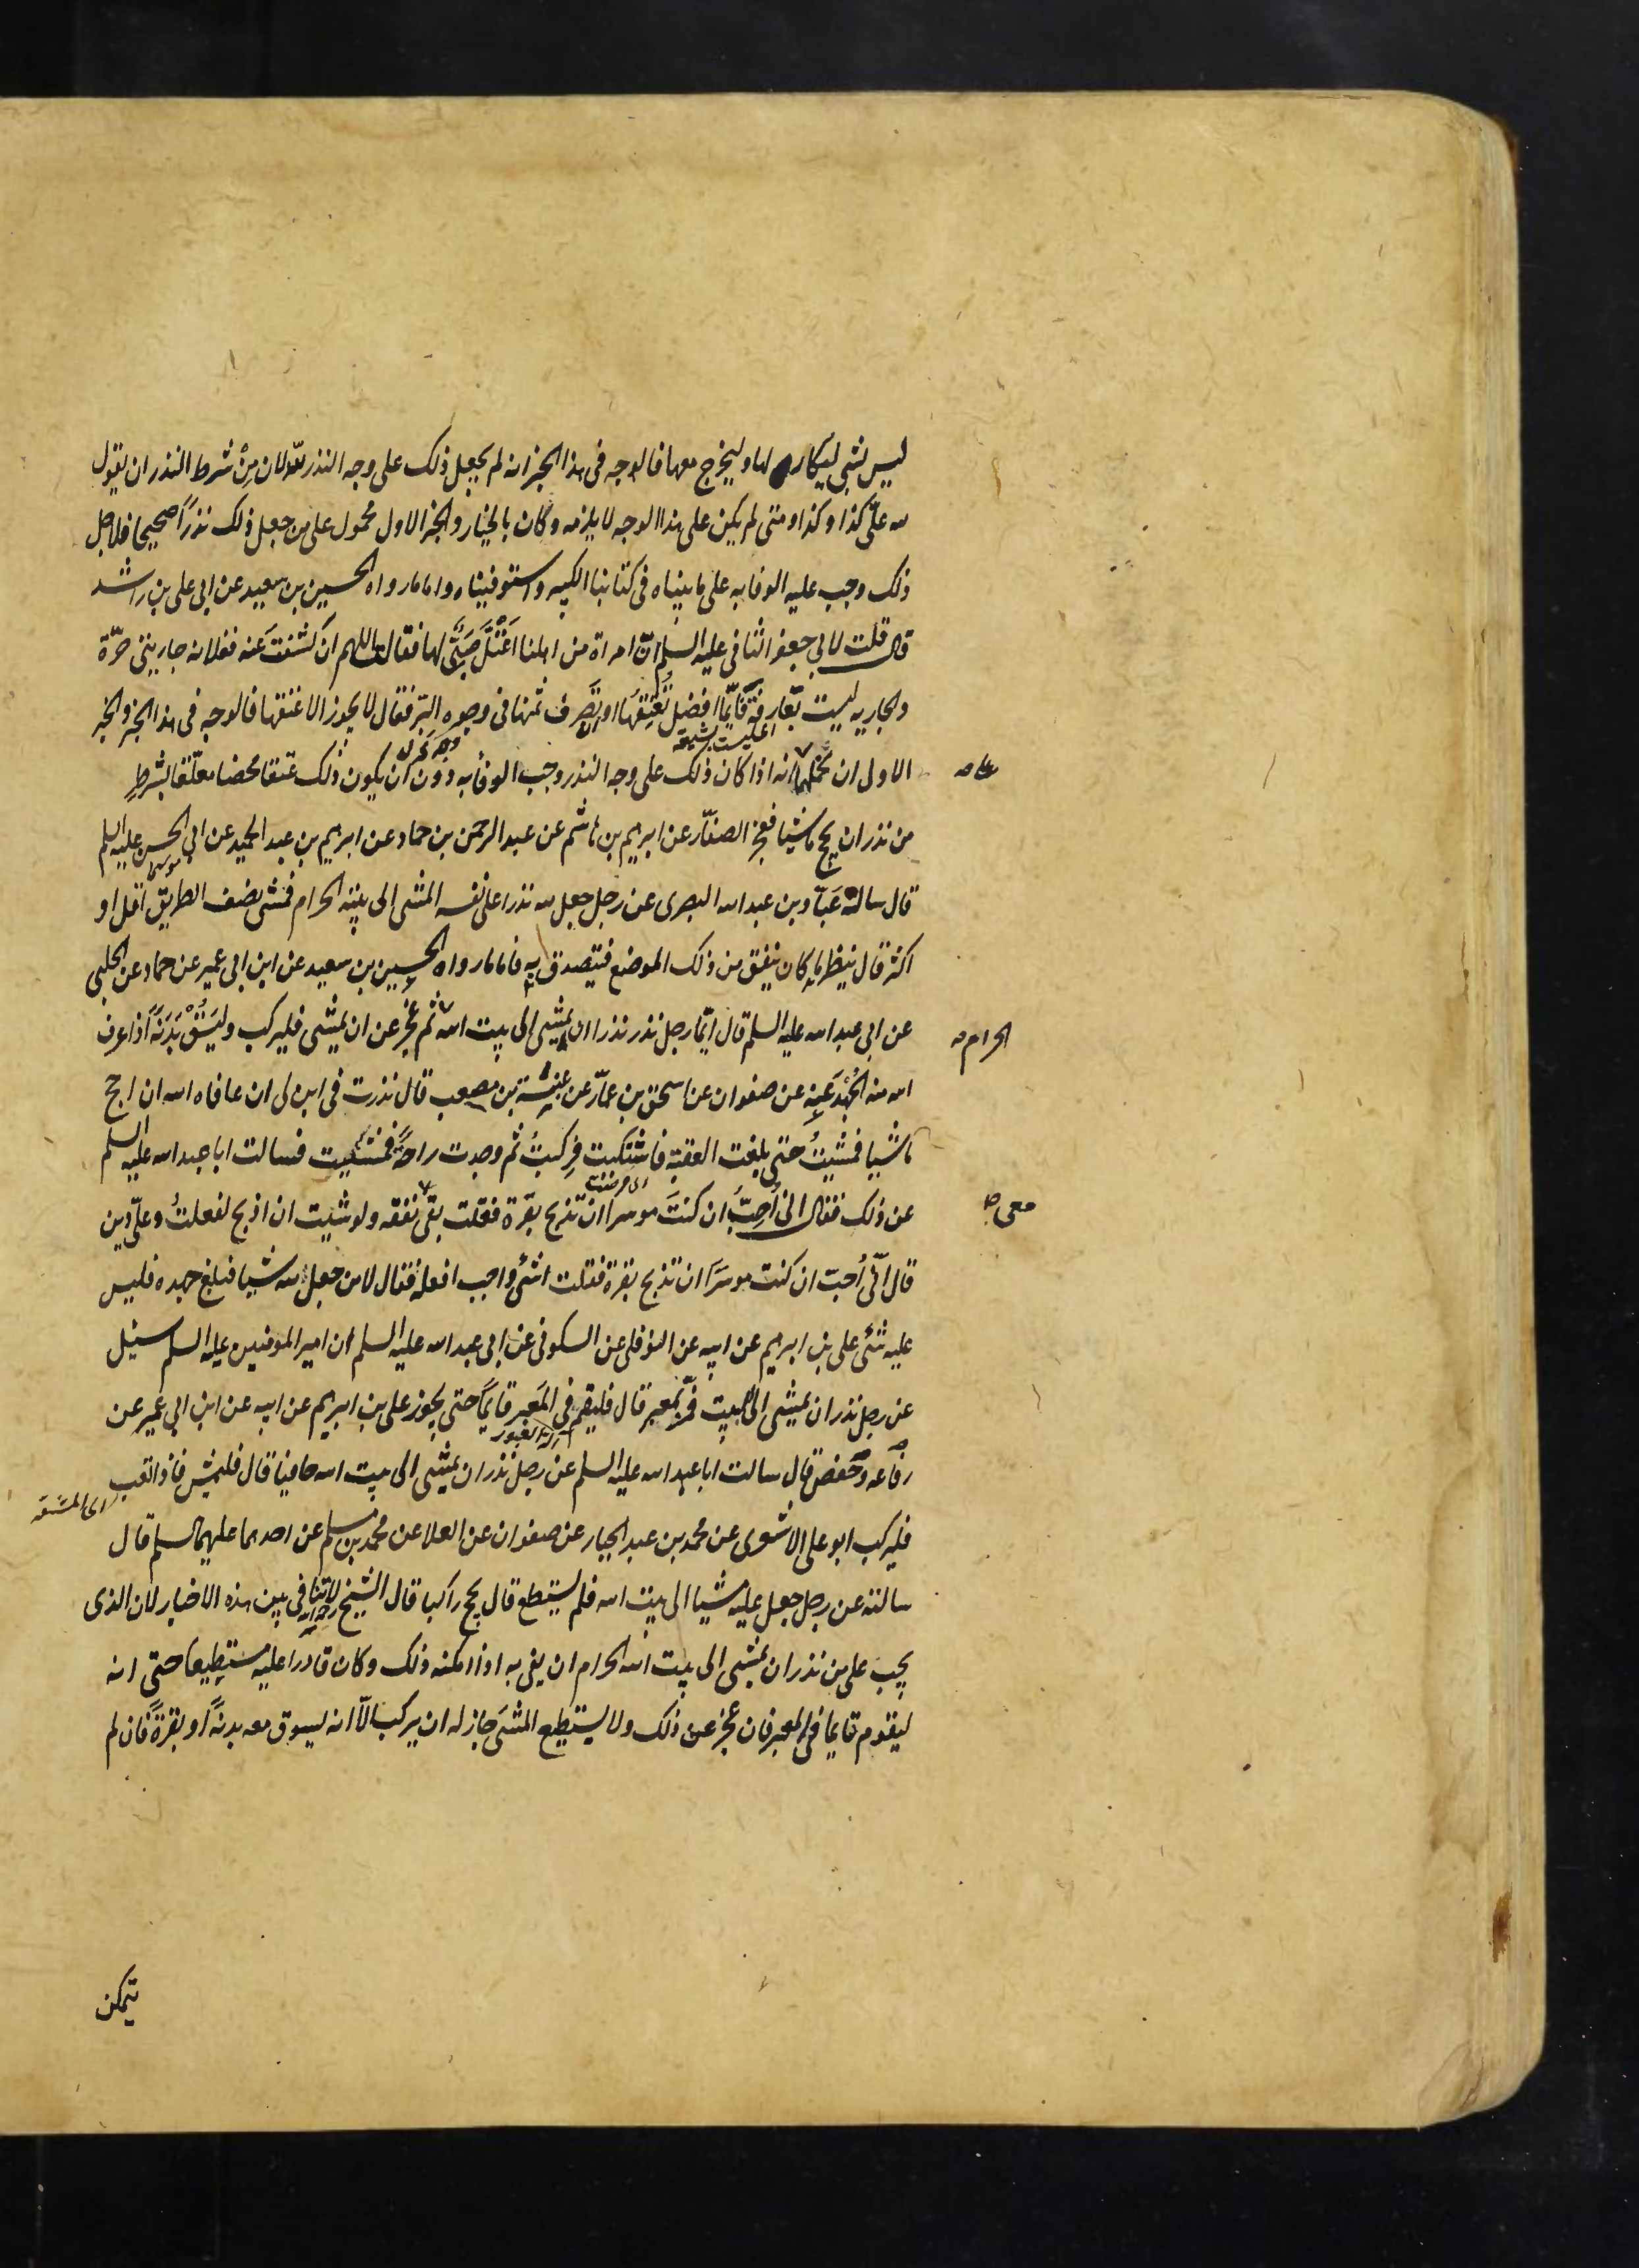 ليس بشي ليكار لها وليخرج معها فالوجه فى هذا الخبر انه لم يجعل ذلك على وجه النذر لله لان مِنْ شرط النذر ان يقول
لله علىّ كذا وكذا ومتى لم يكن على هذا الوجه لا يلزمه وكان بالخيار والخبر الاول محمول على من جعل ذلك نذرًا صحيحا فلاجل
ذلك وجب عليه الوفا به على ما بيناه فى كتابنا الكبير واستوفيناه واما ما رواه الحسين بن سعيد عن ابى على بن راشد
قال قلت لابي جعفر الثانى عليه السلم انّ امراة من اهلنا اعْتَلَّ صَبِىٌّ لها فقالت اللهم ان كشفتَ عنه ففلانه جاريتى حرّة
والجاريه ليست بعارفة فايّما افضل تُعْتِقُها او تَصرف ثمنها فى وجوه البّر فقال لا يجوز الا عتقها فالوجه فى هذا الخبر والخبر
اى ليست بشيعه
الاول ان نحملهما انه اذا كان ذلك على وجه النذر وجب الوفا به دون ان يكون ذلك عتقا محضا معلّقا بشرطٍ
على
من نذر ان يحج ماشيا فعجز الصفّار عن ابرهيم بن هاشم عن عبد الرحمن بن حماد عن ابرهيم بن عبد الحميد عن ابى الحسن عليه السلم
موسى
قال ساله عَبّاد بن عبد الله البصرى عن رجل جعل لله نذرا على نفسه المشى الى بيته الحرام فمشى نصف الطريق اقل او
اكثر قال ينظر ما كان ينفق من ذلك الموضع فيتصدق به فاما ما رواه الحسين بن سعيد عن ابن ابى عمير عن حماد عن الحلبى
عن ابى عبد الله عليه السلم قال ايّما رجل نذر نذرا ان يمشى الى بيت الله ثم عجز عن ان يمشى فليركب وليَسُقْ بَدَنَةً اذا عرف
الحرام
الله منه الجُهْدَ عنه عن صفوان عن اسحق بن عمّار عن عنبسة بن مصعب قال نذرت فى ابن لى ان عافاه الله ان احج
ماشيا فمشيتُ حتى بلغت العقبة فاشتكيت فركبتُ ثم وجدت راحةً فمشيت فسالت ابا عبد الله عليه السلم
اى مرضت
عن ذلك فقال انى اُحِبُّ ان كنتَ موسرا ان تذبح بقرة فقلت نفقه ولو شيت ان اذبح لفعلتُ وعلىّ دين
معى
قال انّى اُحبّ ان كنت موسرًا ان تذبح بقرة فقلت اشئ واجب افعله فقال لا من جعل لله شيا فبلغ جهده فليس
عليه شئ على بن ابرهيم عن ابيه عن النوفلى عن السكونى عن ابى عبد الله عليه السلم ان امير المومنين عليه السلم سئل
عن رجل نذر ان يمشى الى البيت فمّر بمعبر قال فليقم فى المَعبر قايمًا حتى يجوز على بن ابرهيم عن ابيه عن ابن ابى عمير عن
رفاعه وحفص قال سالت ابا عبد الله عليه السلم عن رجل نذر ان يمشى الى بيت الله حافيا قال فليمش فاذا تعب
اى المشقه
فليركب ابو على الاشعرى عن محمد بن عبد الجبار عن صفوان عن العلا عن محمد بن مسلم عن احدهما عليهما السلم قال
سالته عن رجل جعل عليه مشيا الى بيت الله فلم يستطع قال يحج راكبا قال الشيخ رحمه الله لا تنافى بين هذه الاخبار لان الذى
يجب على من نذر ان يمشى الى بيت الله الحرام ان يفى به اذا امكنه ذلك وكان قادرا عليه مستطيعا حتى انه
ليقوم قايما فى المعبر فان عجز عن ذلك ولا يستطيع المشىَ جاز له ان يركب الّا انه يسوق معه بدنةً او بقرةً فان لم
يتمكن